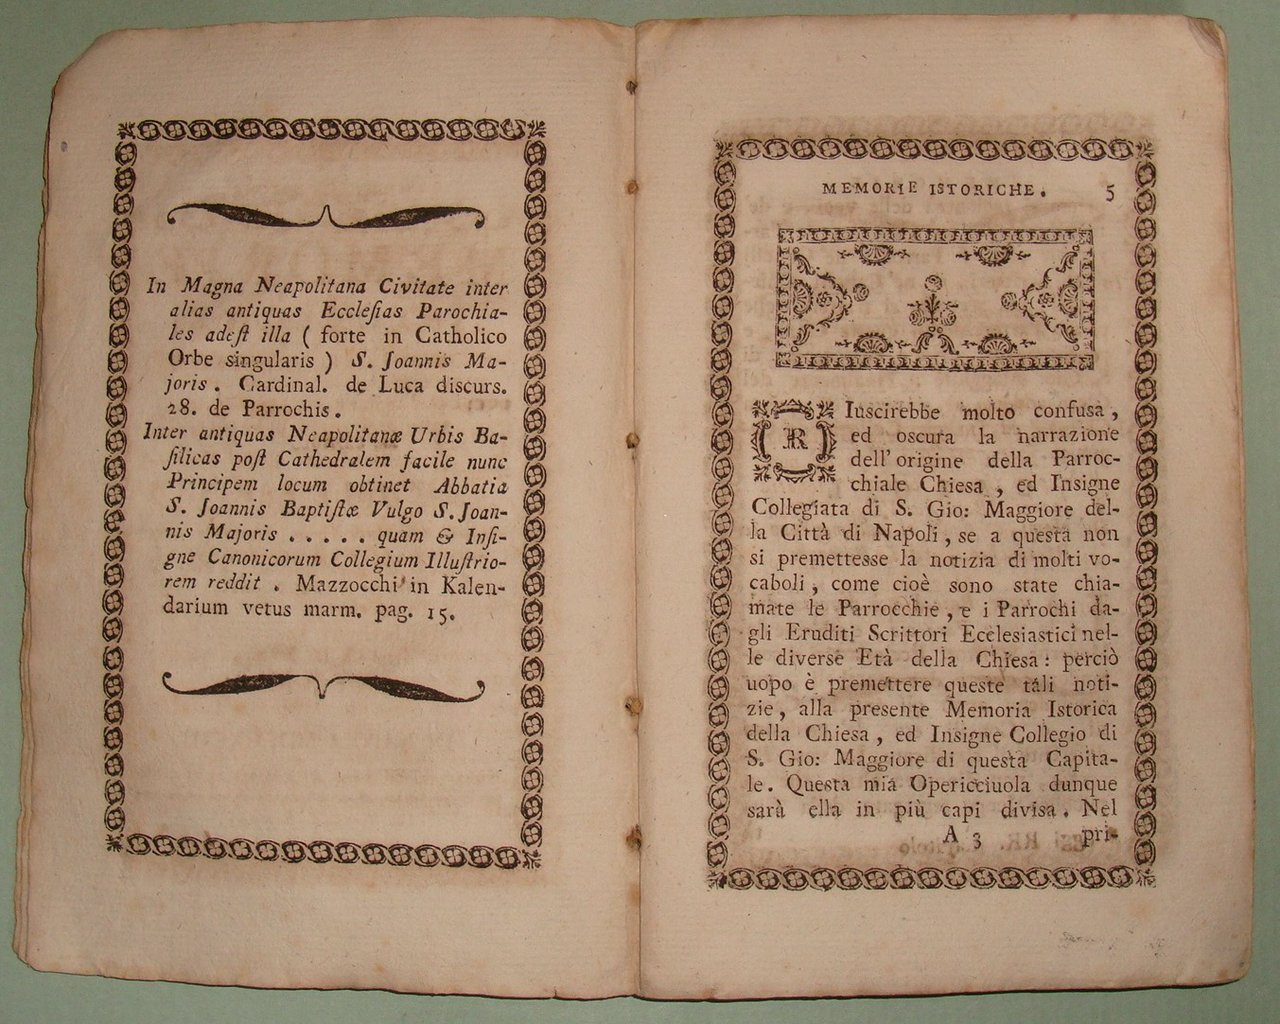 In Magna Neapolitana Civitate inter
alias antiquas Ecclesias Parochia-
les adeſt illa ( forte in Catholico
Orbe singularis ) S. Joannis Ma-
joris . Cardinal. de Luca discurs.
28. de Parrochis .
Inter antiquas Neapolitanæ Urbis Ba-
ſilicas poſt Cathedralem facile nunc
Principem locum obtinet Abbatia
S. Joannis Baptiſtæ Vulgo S. Joan-
nis Majoris . . . . . quam & Inſi-
gne Canonicorum Collegium Illuſtrio-
rem reddit . Mazzocchi in Kalen-
darium vetus marm. pag. 15.
MEMORIE ISTORICHE. 5
RIuscirebbe molto confusa ,
ed oscura la narrazione
dell' origine della Parroc-
chiale Chiesa , ed Insigne
Collegiata di S. Gio: Maggiore del-
la Città di Napoli , se a questa non
si premettesse la notizia di molti vo-
caboli , come cioè sono state chia-
mate le Parrocchie , e i Parrochi da-
gli Eruditi Scrittori Ecclesiastici nel-
le diverse Età della Chiesa : perciò
uopo è premettere queste tali noti-
zie , alla presente Memoria Istorica
della Chiesa , ed Insigne Collegio di
S. Gio: Maggiore di questa Capita-
le. Questa mia Opericciuola dunque
sarà ella in più capi divisa . Nel
A 3 pri-